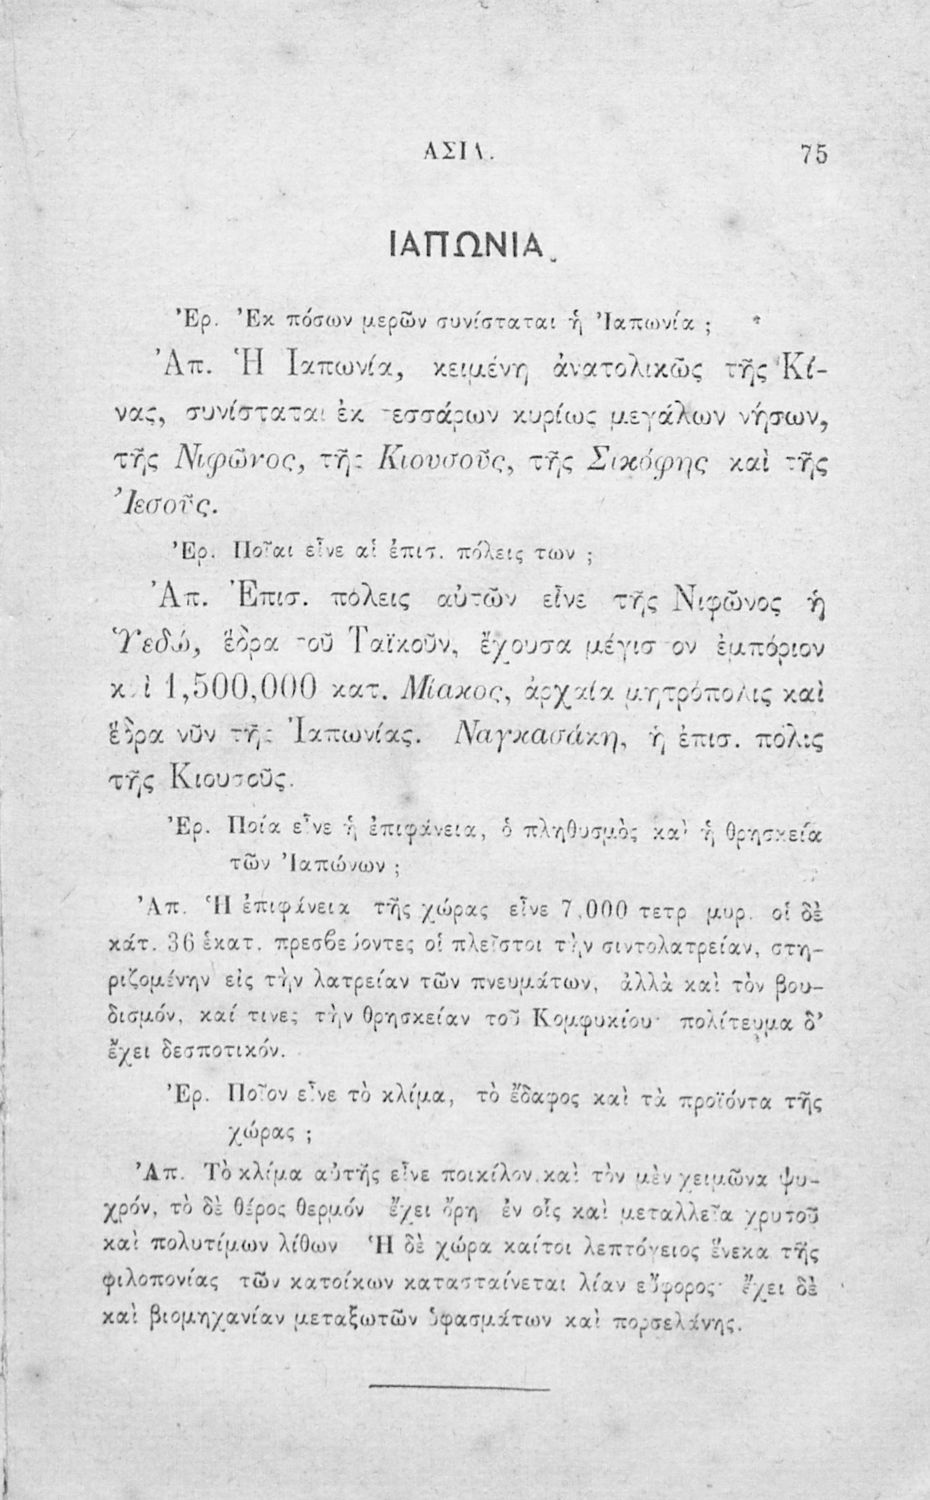 ΑΣΙΑ. 75
ΙΑΠΩΝΙΑ.
Ἐρ. Ἐκ πόσων μερῶν συνίσταται ἡ Ἰαπωνία ;
Ἀπ. Ἡ Ιαπωνία, κειμένη ἀνατολικῶς τῆς Κί-
νας, συνίσταται ἐκ τεσσάρων κυρίως μεγάλων νήσων,
τῆς Νιφῶνος, τῆς Κιουσοῦς, τῆς Σικόφης καὶ τῆς
Ἰεσοῦς.
Ἐρ. Ποῖαι εἶνε αἱ ἐπισ. πόλεις των ;
Ἀπ. Ἐπισ. πόλεις αὐτῶν εἶνε τῆς Νιφῶνος ἡ
Ὑεδώ, ἕδρα τοῦ Ταϊκοῦν, ἔχουσα μέγιστον ἐμπόριον
καὶ 1,500,000 κατ. Μίακος, ἀρχαία μητρόπολις καὶ
ἕδρα νῦν τῆς Ἰαπωνίας. Ναγκασάκη, ἡ ἐπισ. πόλις
τῆς Κιουσοῦς.
Ἐρ. Ποία εἶνε ἡ ἐπιφάνεια, ὁ πληθυσμὸς καὶ ἡ θρησκεία
τῶν Ἰαπώνων ;
Ἀπ. Ἡ ἐπιφάνεια τῆς χώρας εἶνε 7,000 τετρ μυρ. οἱ δὲ
κάτ. 36 ἑκατ. πρεσβεύοντες οἱ πλεῖστοι τὴν σιντολατρείαν, στη-
ριζομένην εἰς τὴν λατρείαν τῶν πνευμάτων, ἀλλὰ καὶ τὸν βου-
δισμόν, καί τινες τὴν θρησκείαν τοῦ Κομφυκίου· πολίτευμα δ'
ἔχει δεσποτικόν.
Ἐρ. Ποῖον εἶνε τὸ κλίμα, τὸ ἔδαφος καὶ τὰ προϊόντα τῆς
χώρας ;
Ἀπ. Τὸ κλίμα αὐτῆς εἶνε ποικίλον.καὶ τὸν μὲν χειμῶνα ψυ-
χρόν, τὸ δὲ θέρος θερμόν ἔχει ὄρη ἐν οἷς καὶ μεταλλεῖα χρυσοῦ
καὶ πολυτίμων λίθων Ἡ δὲ χώρα καίτοι λεπτόγειος ἕνεκα τῆς
φιλοπονίας τῶν κατοίκων κατασταίνεται λίαν εὔφορος· ἔχει δὲ
καὶ βιομηχανίαν μεταξωτῶν ὑφασμάτων καὶ πορσελάνης.